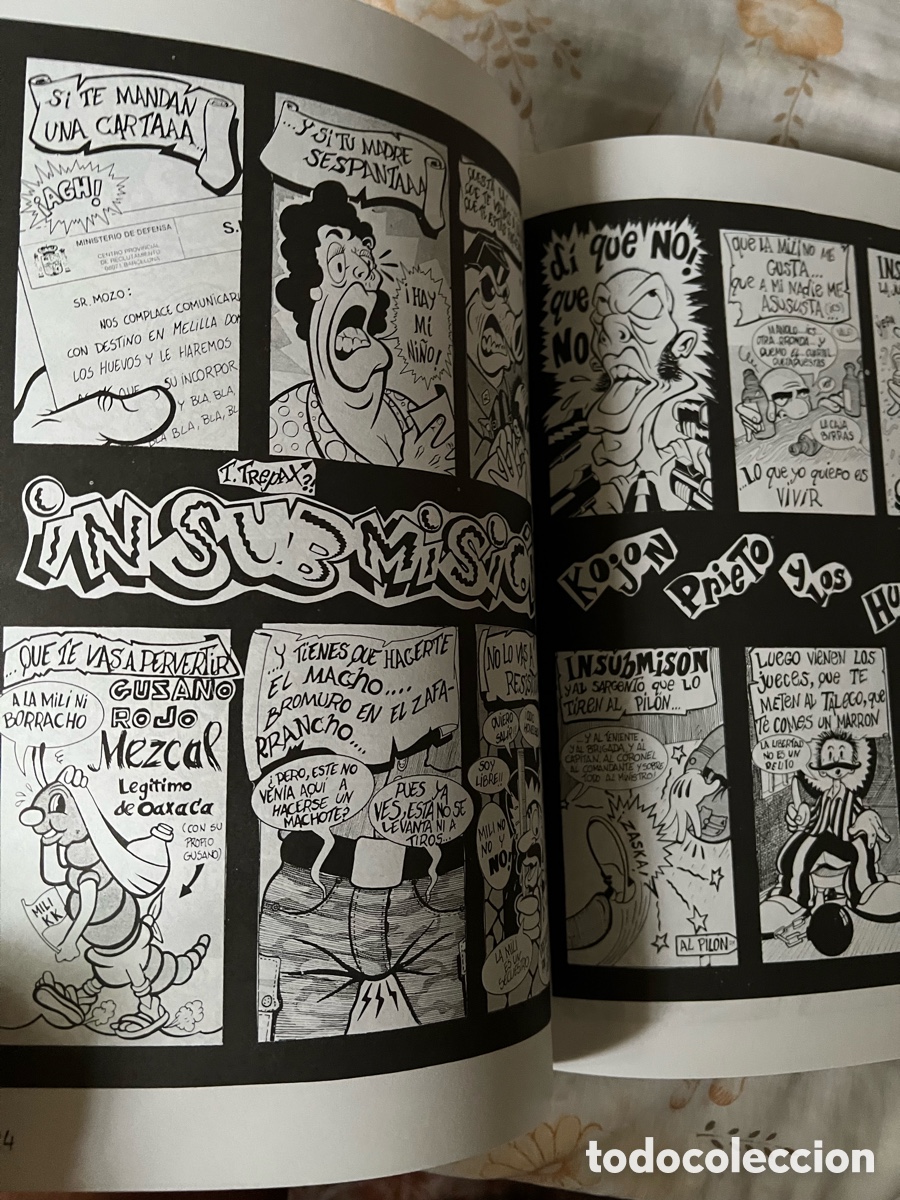 SI TE MANDAN
UNA CARTAAA
¡AGH!
MINISTERIO DE DEFENSA
CENTRO PROVINCIAL
DE RECLUTAMIENTO
BARCELONA
SR. MOZO:
NOS COMPLACE COMUNICAR
CON DESTINO EN MELILLA DON
LOS HUEVOS Y LE HAREMOS
SU INCORPOR
Y BLA, BLA,
BLA BLA, BLA, BL
...Y SI TU MADRE
SESPANTAAA
¡HAY
MI
NIÑO!
QUE TE
di que NO!
que
NO
que LA MILI NO ME
GUSTA...
que A MI NADIE ME
ASUSUSTA
MANOLO
OTRA RRONDA... Y
QUEMO EL CUARTEL
LA CAJA
BIRRAS
...LO que yo quiero es
VIVIR
INS
T. TREPAX?
INSUBMISIO
KOJON
PRIETO
y LOS
HU
...QUE TE VAS A PERVERTIR
A LA MILI NI
BORRACHO
GUSANO
ROJO
Mezcal
Legitimo
de Oaxaca
(CON SU
PROPIO
GUSANO)
MILI
KK
...Y TIENES QUE HACERTE
EL MACHO....
BROMURO EN EL ZAFA-
RRANCHO....
¿PERO, ESTE NO
VENIA AQUI A
HACERSE UN
MACHOTE?
PUES YA
VES, ESTA NO SE
LEVANTA NI A
TIROS...
NO LO VAS A
RESIST
QUIERO
SALIR
SOY
LIBRE!!
MILI NO
NO Y
NO!
LA MILI
ES UN
SECUESTRO
INSUBMISON
Y AL SARGENTO QUE LO
TIREN AL PILON...
...Y AL TENIENTE,
Y AL BRIGADA, Y AL
CAPITAN, AL CORONEL
AL COMANDANTE Y SOBRE
TODO AL MINISTRO!
ZASKA!
AL PILON
LUEGO VIENEN LOS
JUECES, QUE TE
METEN AL TALEGO, QUE
TE COMES UN MARRON
LA LIBERTAD
NO ES UN
DELITO
todocoleccion